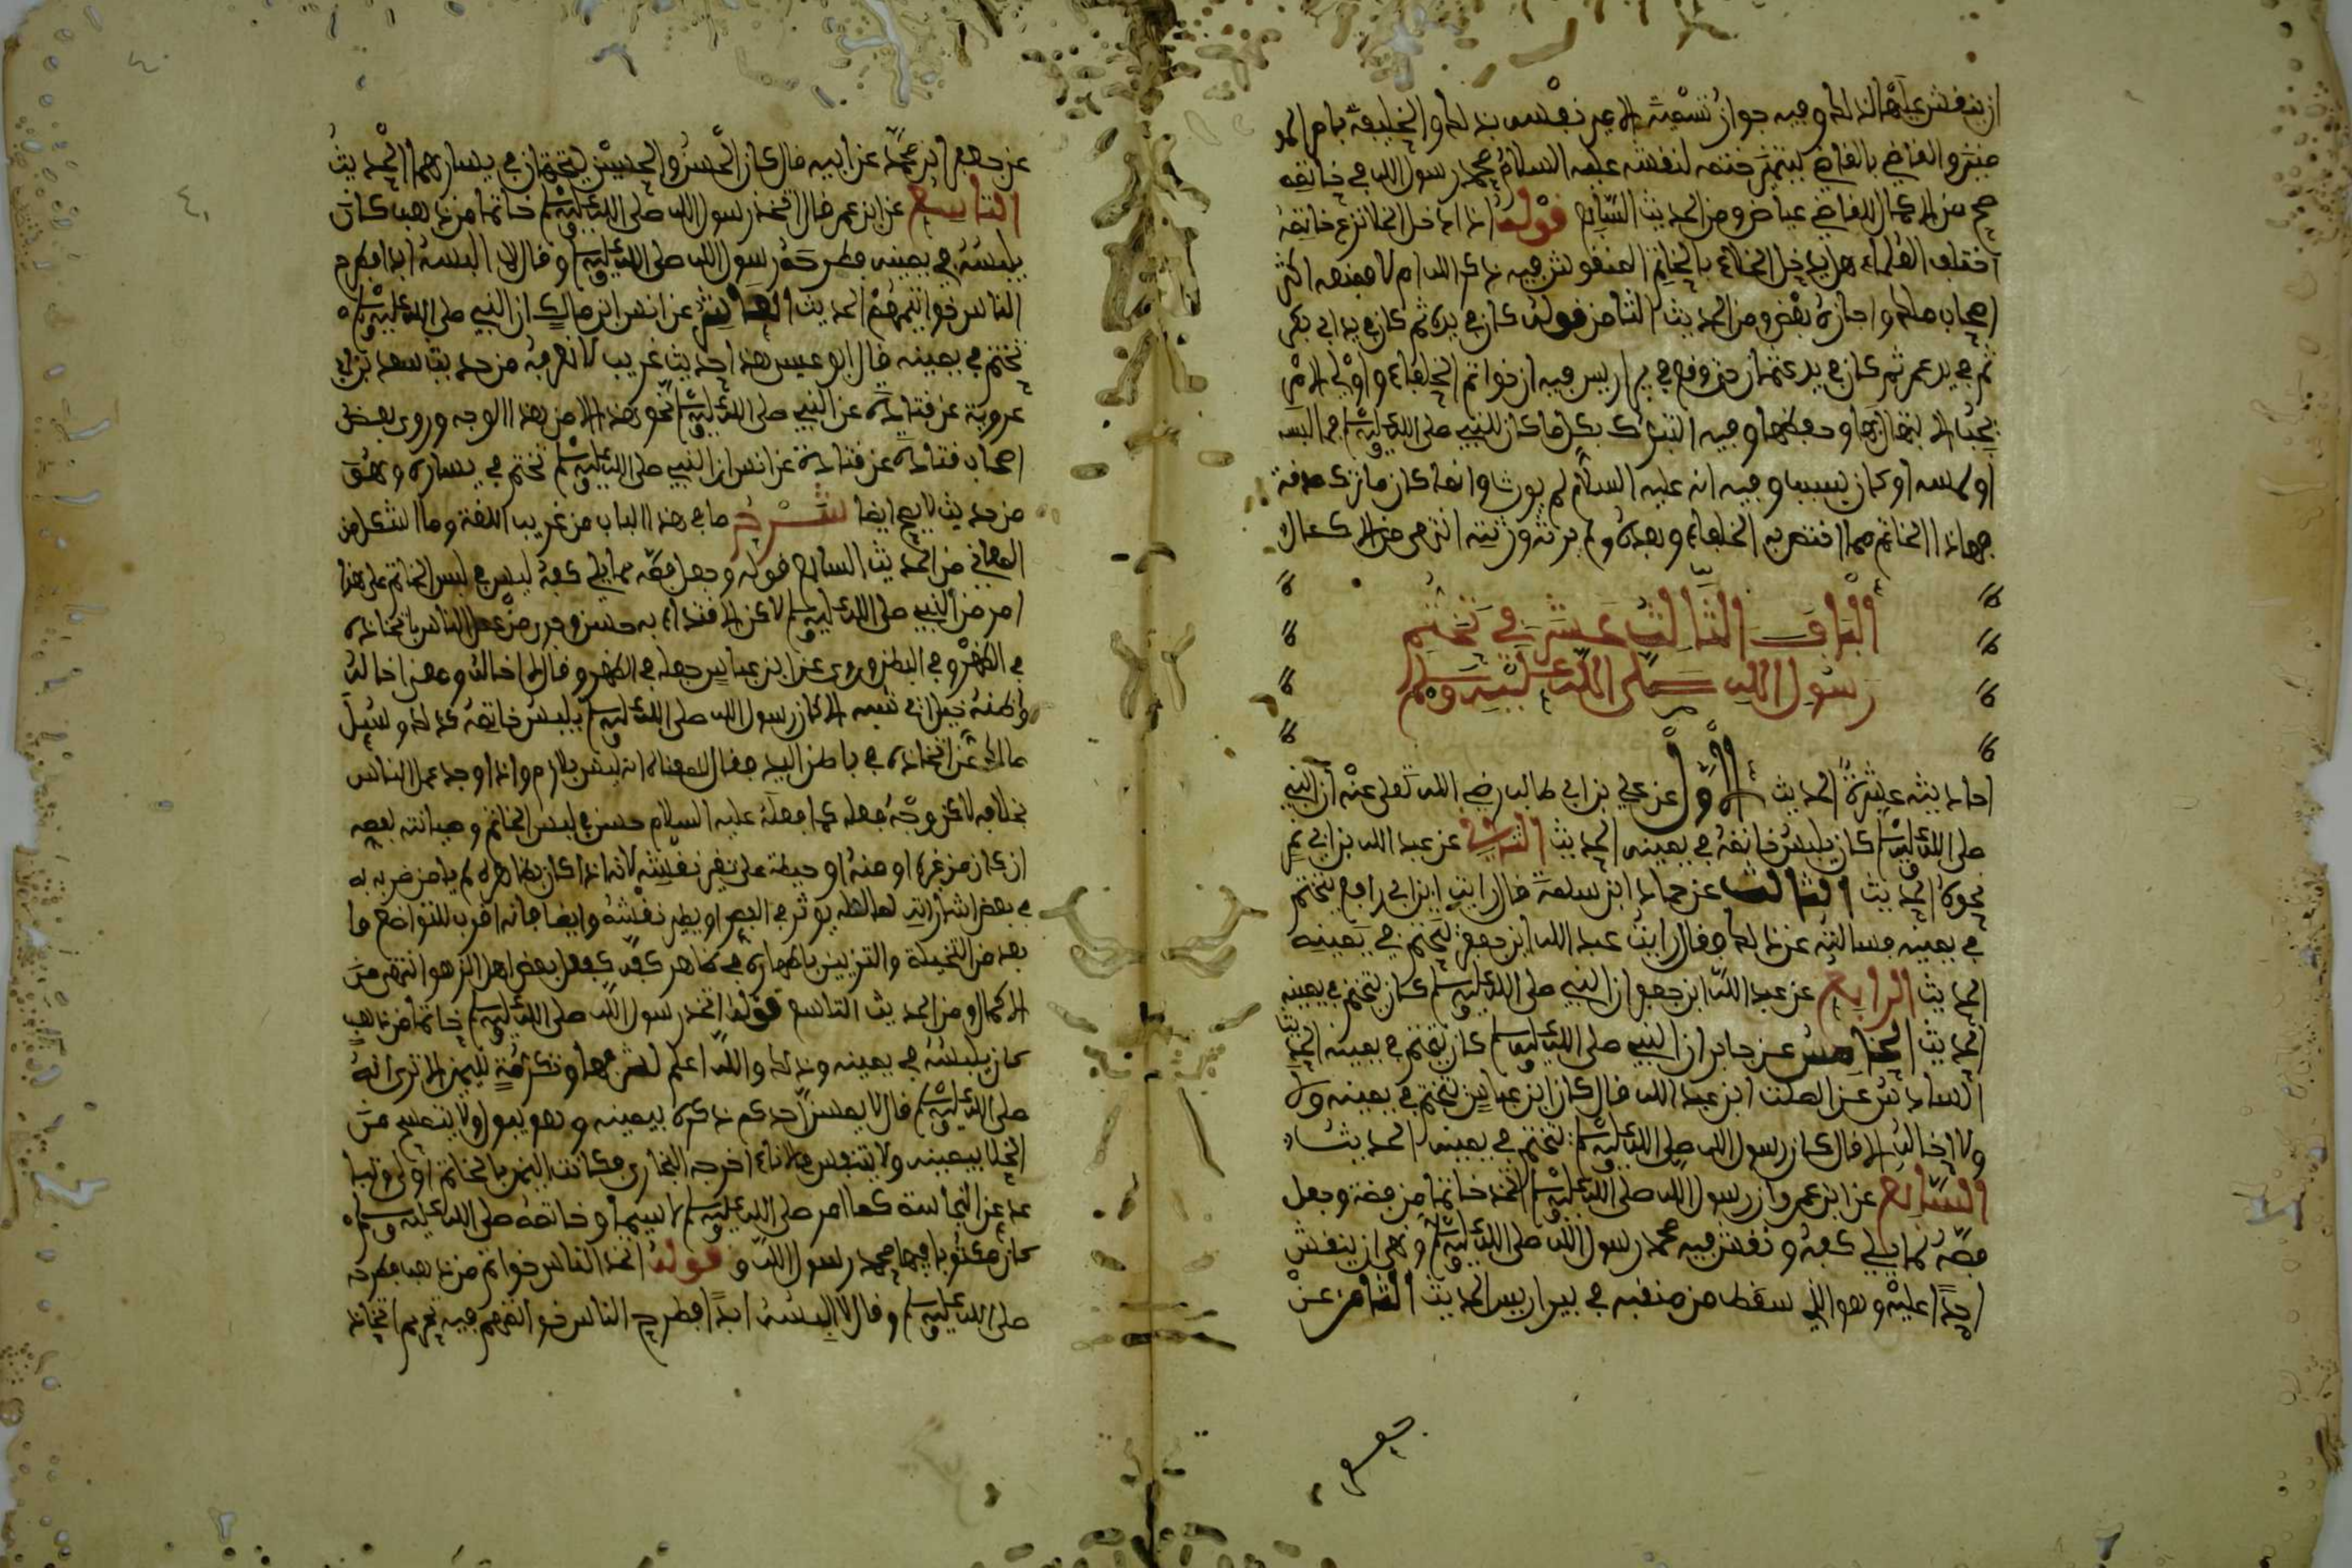 ان ينقش عليها لذلك وفيه جواز تسمية الامير نفسه بذلك والخليفة بامير المو
منين والقاضي بالقاضي ليتميز ختمه لنقشه عليه السلام محمد رسول الله في خاتمه
صح من الاكمال للقاضي عياض ومن الحديث السابع قوله اذا دخل الخلا نزع خاتمه
اختلف العلماء هل يدخل الخلاء بالخاتم المنقوش فيه ذكر الله ام لا فمنعه اكثر
اصحاب مالك واجازه بعض ومن الحديث الثامن قوله كان في يده ثم كان في يد ابي بكر
ثم في يد عمر ثم كان في يد عثمان حتى وقع في بير اريس فيه ان خواتم الخلفاء واولي الامر
يجب الاهتمال بها وحفظها وفيه التبرك بكل ما كان للنبي صلى الله عليه وسلم مما لبسه
او لمسه او كان بسببه وفيه انه عليه السلام لم يورث وانما كان ما ترك صدقة
فهاذا الخاتم مما اختص به الخلفاء وبعده ولم يرثه ورثته انتهى من الاكمال
الباب الثالث عشر في تختم
رسول الله صلى الله عليه وسلم
احاديثه عشرة الحديث الاول عن علي بن ابي طالب رضي الله تعلى عنه ان النبي
صلى الله عليه وسلم كان يلبس خاتمه في يمينه الحديث الثاني عن عبد الله بن ابي نمر
نحوه الحديث الثالث عن حماد ابن سلمة قال رايت ابن ابي رافع يتختم
في يمينه فسالته عن ذلك فقال رايت عبد الله ابن جعفر يتختم في يمينه
الحديث الرابع عن عبد الله ابن جعفر ان النبي صلى الله عليه وسلم كان يتختم في يمينه
الحديث الخامس عن جابر ان النبي صلى الله عليه وسلم كان يتختم في يمينه الحديث
السادس عن الصلت ابن عبد الله قال كان ابن عباس يتختم في يمينه ولا
ولا اخاله الا قال كان رسول الله صلى الله عليه وسلم يتختم في يمينه الحديث
السابع عن ابن عمر وان رسول الله صلى الله عليه وسلم اتخذ خاتما من فضة وجعل
فصه مما يلي كفه ونقش فيه محمد رسول الله صلى الله عليه وسلم ونهى ان ينقش
احد عليه وهو الذي سقط من معيقيب في بير اريس الحديث الثامن عن
جعفر
عن جعفر ابن محمد عن ابيه قال كان الحسن والحسين يتختمان في يسارهما الحديث
التاسع عن ابن عمر قال اتخذ رسول الله صلى الله عليه وسلم خاتما من ذهب كان
يلبسه في يمينه فطرحه رسول الله صلى الله عليه وسلم وقال لا البسه ابدا فطرح
الناس خواتيمهم الحديث العاشر عن انس ابن مالك ان النبي صلى الله عليه وسلم
تختم في يمينه قال ابو عيسى هذا حديث غريب لا نعرفه من حديث سعد بن ابي
عروبة عن قتادة عن النبي صلى الله عليه وسلم نحو هذا الا من هذا الوجه وروى بعض
اصحاب قتادة عن قتادة عن انس ان النبي صلى الله عليه وسلم تختم في يساره وهو
من حديث لا يصح ايضا شرح ما في هذا الباب من غريب اللغة وما اشكل من
المعاني من الحديث السابع قوله وجعل فصه مما يلي كفه ليس في لبس الخاتم على هذا
امر من النبي صلى الله عليه وسلم لاكن الاقتداء به حسن وقد عمل الناس باتخاذه
في الظهر وفي البطن وروي عن ابن عباس جعله في الظهر وقال لا اخاله وهذا اخاله
واظنه خبر اني نسيه الا كان رسول الله صلى الله عليه وسلم يلبس خاتمه كذلك وسيل
مالك عن اتخاذه في باطن اليد فقال لا معناه انه ليس بلازم واذا وجد عمل الناس
بخلافه لاكن وجه فعله كما فعله عليه السلام حسن في لبس الخاتم وصيانته لفصه
ان كان من غيره او منه او حيطة على نفش نقشه لانه اذا كان بظاهره لم يامن ضربه له
في بعض اشارات لعله يوثر في الفص او يطير نقشه وايضا فانه اقرب للتواضع وا
بعد من التخيلة والتزيين باظهاره في ظاهر كفه كفعل بعض اهل الزهو انتهى من
الاكمال ومن الحديث التاسع قوله اتخذ رسول الله صلى الله عليه وسلم خاتما من ذهب
كان يلبسه في يمينه وذلك والله اعلم لشرفها وتكرمة لليمن الا ترى انه
صلى الله عليه وسلم قال لا يمس احدكم ذكره بيمينه وهو يبول ولا يتمسح من
الخلا بيمينه ولا يتنفس في الاناء اخرجه البخاري فكانت اليمن بالخاتم اولى وليبا
عد عن النجاسة كما امر صلى الله عليه وسلم لا سيما وخاتمه صلى الله عليه وسلم
كان مكتوبا فيها محمد رسول الله وقوله اتخذ الناس خواتم من ذهب فطرحه
صلى الله عليه وسلم وقال لا البسه ابدا فطرح الناس خواتمهم فيه تحريم اتخاذ